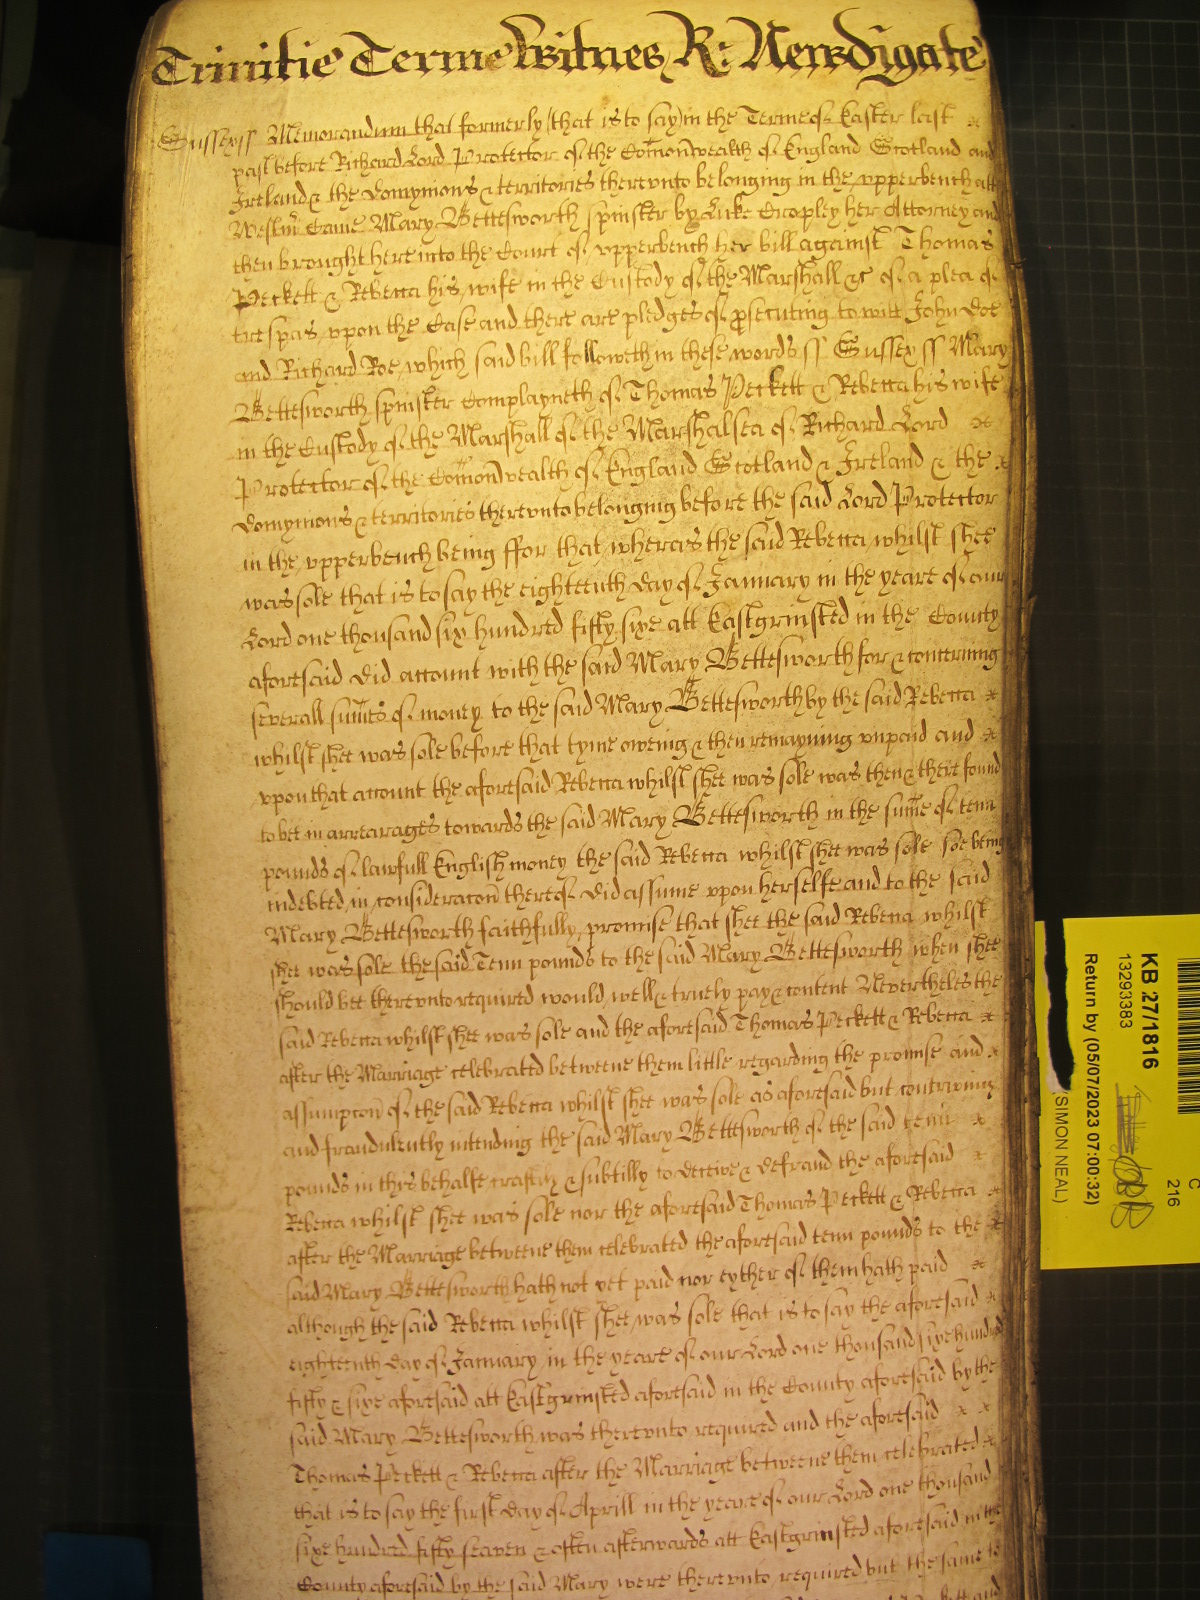 Trinitie Terme Witnes R: Newdigate
Sussex ss Memorandum that formerly (that is to say) in the Terme of Easter last
past before Richard Lord Protector of the Com̄onwealth of England Scotland and
Ireland & the Domynions & territories therevnto belonging in the vpperbench att
Westm̃ Came Mary Bettesworth spinster by Luke Cropley her Attorney and
then brought here into the Court of vpperbench her bill against Thomas
Peckett & Rebecca his wife in the Custody of the Marshall &c of a plea of
trespas vpon the Case and there are pledges of p̱secuting to witt John Doe
and Richard Roe, which said bill followeth in these words ss Sussex ss Mary
Bettesworth spinster Complayneth of Thomas Peckett & Rebecca his wife
in the Custody of the Marshall of the Marshalsea of Richard Lord
Protector of the Com̄onwealth of England Scotland & Ireland & the
Domynions & territories therevnto belonging before the said Lord Protector
in the vpperbench being ffor that whereas the said Rebecca whilst shee
was sole that is to say the eighteenth day of January in the yeare of our
Lord one thousand six hundred fifty sixe att Eastgrinsted in the County
aforesaid did account with the said Mary Bettesworth for & concerning
severall sum̄es of money to the said Mary Bettesworth by the said Rebecca
whilst shee was sole before that tyme oweing & then remayning vnpaid and
vpon that account the aforesaid Rebecca whilst shee was sole was then & there found
to bee in arrearages towards the said Mary Bettesworth in the sum̄e of tenn
pounds of lawfull English money the said Rebecca whilst shee was sole soe being
indebted in consideracon̄ thereof did assume vpon herselfe and to the said
Mary Bettesworth faithfully promise that shee the said Rebecca whilst
shee was sole the said Tenn pounds to the said Mary Bettesworth when shee
should bee therevnto required would well & truely pay & content Nevertheles the
said Rebecca whilst shee was sole and the aforesaid Thomas Peckett & Rebecca
after the Marriage celebrated betweene them little regarding the promise and
assumpcon̄ of the said Rebecca whilst shee was sole as aforesaid but contriving
and fraudulently intending the said Mary Bettesworth of the said tenn
pounds in this behalfe craftily & subtilly to deceive & defraud the aforesaid
Rebecca whilst shee was sole nor the aforesaid Thomas Peckett & Rebecca
after the Marriage betweene them celebrated the aforesaid tenn pounds to the
said Mary Bettesworth hath not yet paid nor eyther of them hath paid
although the said Rebecca whilst shee was sole that is to say the aforesaid
eighteenth day of January in the yeare of our Lord one thousand sixe hundred
fifty & sixe aforesaid att Eastgrinsted aforesaid in the County aforesaid by the
said Mary Bettesworth was therevnto required and the aforesaid
Thomas Peckett & Rebecca after the Marriage betweene them celebrated
that is to say the first day of Aprill in the yeare of our Lord one thousand
sixe hundred fifty seaven & often afterwards att Eastgrinsted aforesaid in the
County aforesaid by the said Mary were therevnto required but the same to
KB 27/1816
13293383
Return by (05/07/2023 07:00:32)
(SIMON NEAL)
C
216